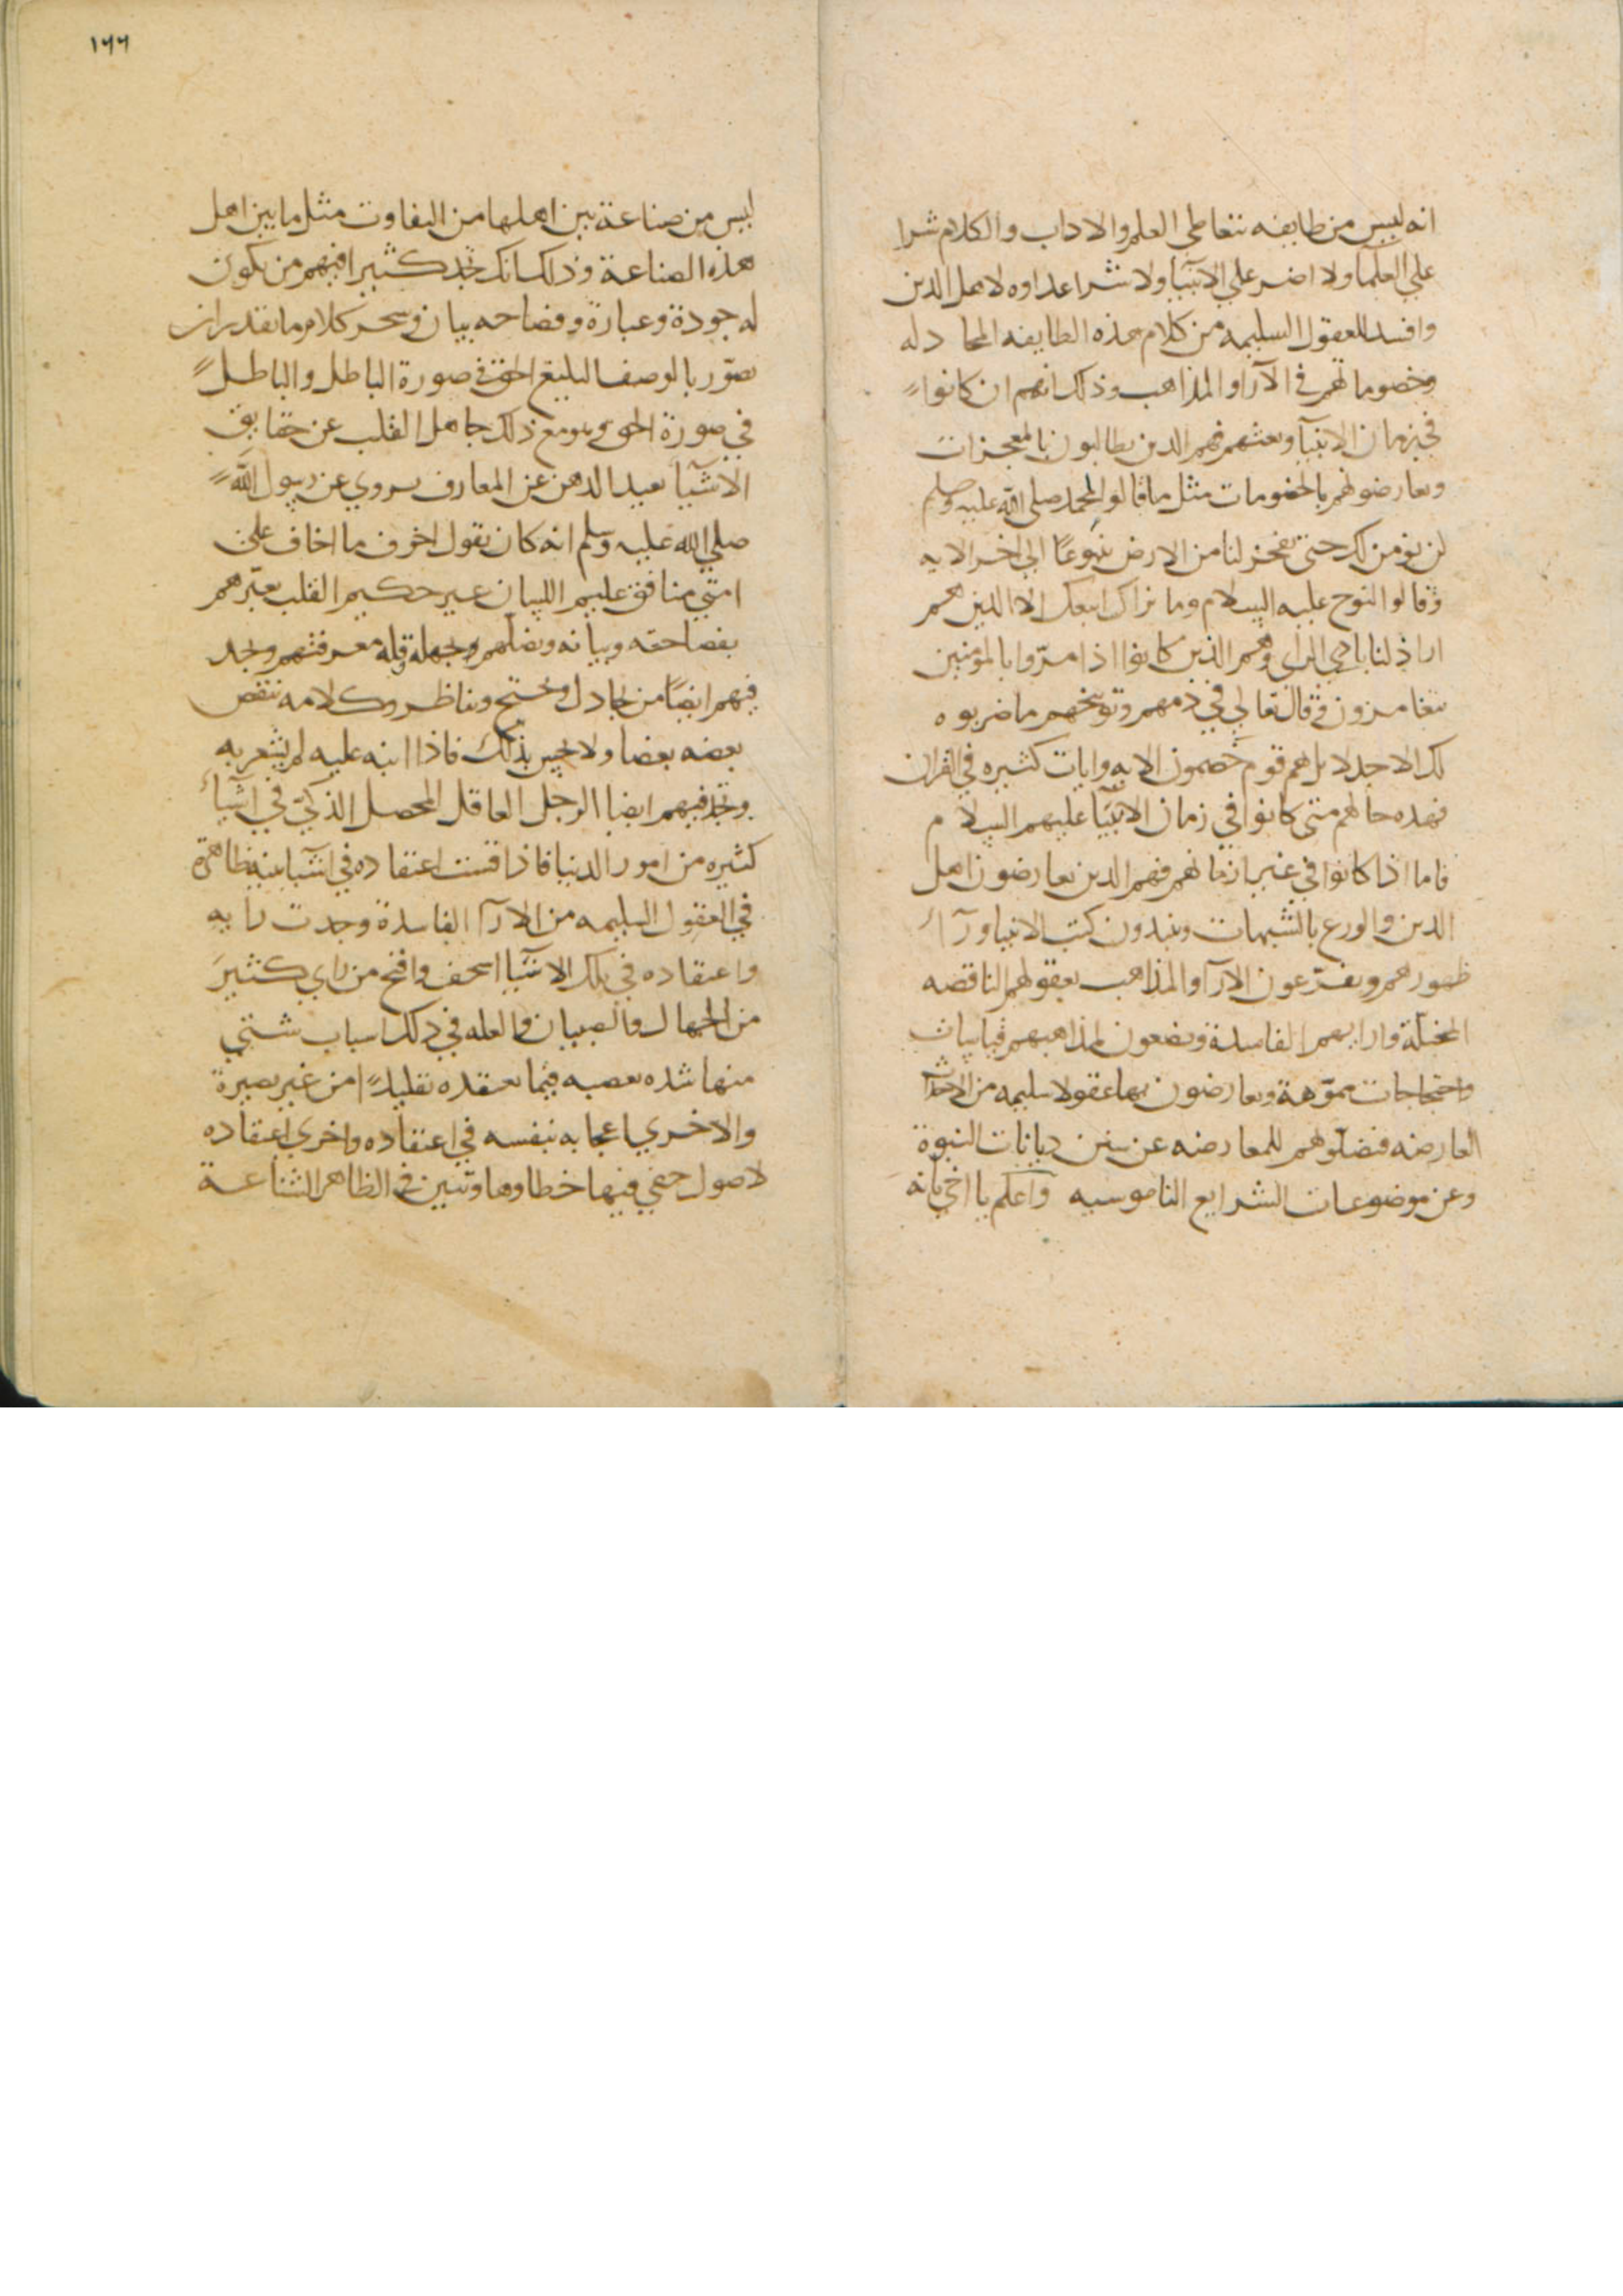 انه ليس من طايفه تتعاطي العلم والاداب والكلام شرا
علي العلما ولا اضر علي الانبيا ولا شر اعداوه لاهل الدين
وافسد للعقول السليمه من كلام هذه الطايفه المجا دله
وخصوماتهم في الآرا والمذاهب وذلك انهم ان كانوا
في زمان الانبيآ وبعثهم فهم الدين يطالبون بالمعجزات
ويعارضونهم بالخصومات مثل ما قالوا لمحمد صلي الله عليه وسلم
لن نومن لك حتي تفجر لنا من الارض ينبوعًا الي اخر الايه
وقالوا النوح عليه السلام وما نراك اتبعك الا الذين هم
اراذلنا بادي الراي وهم الذين كانوا اذا مرّوا بالمومنين
يتغامزون وقال تعالي في ذمهم وتوبيخهم ما ضربوه
لك الا جدلا بل هم قوم خصمون الايه وايات كثيره في القران
فهذه حالهم متي كانوا في زمان الانبيآ عليهم السلا م
فاما اذا كانوا في غير ازمانهم فهم الدين يعارضون اهل
الدين والورع بالشبهات وينبدون كتب الانبيا ورآ
ظهورهم ويفرّعون الارآ والمذاهب بعقولهم الناقصه
المختلة وارايهم الفاسدة ويضعون لمذاهبهم قياسات
واحتجاجات مموّهة ويعارضون بها عقولا سليمه من الاحداث
العارضه فيضلّوهم للمعارضه عن سنن ديانات النبوة
وعن موضوعات الشرايع الناموسيه واعلم يا اخي بانه
١٦٦
ليس من صناعة بين اهلها من التفاوت مثل ما بين اهل
هذه الصناعة وذلك انك تجد كثيرا فيهم من يكون
له جودة وعبارة وفصاحه بيان وسحر كلام ما يقدر ان
يصوّر بالوصف البليغ الحق في صورة الباطل والباطل
في صورة الحق وهو مع ذلك جاهل القلب عن حقايق
الاشيآ بعيد الدهن عن المعارف يروي عن رسول الله
صلي الله عليه وسلم انه كان يقول اخوف ما اخاف علي
امتي منافق عليم اللسان غير حكيم القلب يغيّرهم
بفصاحته وبيانه ويضلّهم وجهله قله معرفتهم وتجد
فيهم ايضًا من يجادل ويحتج ويناظر وكلامه ينقض
بعضه بعضا ولا يحس بذلك فاذا انبه عليه لم يشعر به
وتجد فيهم ايضا الرجل العاقل المحصل الذكيّ في اشيآء
كثيره من امور الدنيا فاذا قست اعتقاده في اشيا بينه ظاهرة
في العقول السليمه من الارآ الفاسدة وجدت رايه
واعتقاده في تلك الاشيآ اسخف واقبح من راي كثير
من الجهال والصبيان والعله في ذلك اسباب شتي
منها شده تعصبه فيما يعتقده تقليدًا من غير بصيرة
والاخري اعجابه بنفسه في اعتقاده واخري اعتقاده
لاصول خفي فيها خطاوها وتبين في الظاهر الشناعة